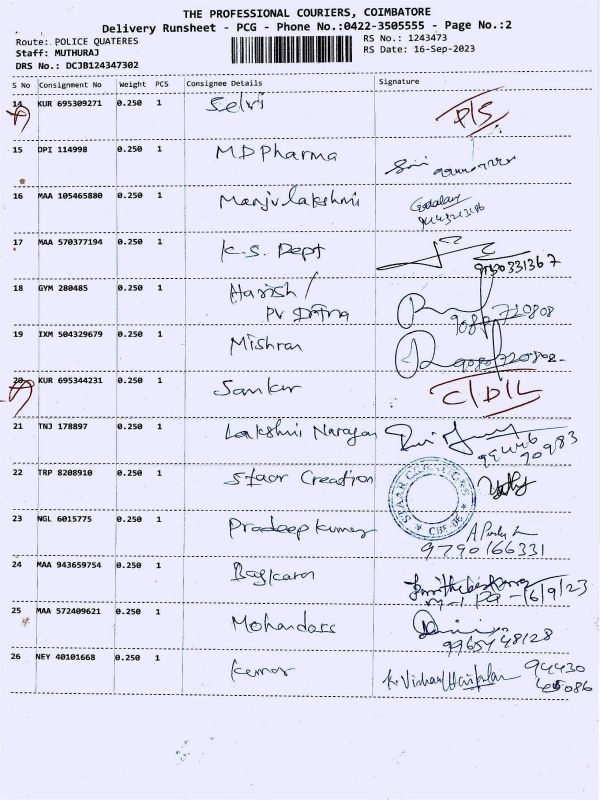 THE PROFESSIONAL COURIERS, COIMBATORE
Delivery Runsheet - PCG - Phone No.:0422-3505555 - Page No.:2
Route: POLICE QUATERES
RS No.: 1243473
Staff: MUTHURAJ
RS Date: 16-Sep-2023
DRS No.: DCJB124347302
S No Consignment No Weight PCS Consignee Details Signature
14 KUR 695309271 0.250 1 Selvi D/S
15 DPI 114998 0.250 1 M.D Pharma
16 MAA 105465880 0.250 1 Manjulakshmi
17 MAA 570377194 0.250 1 K.S. Dept
18 GYM 280485 0.250 1 Harish /
PV
9087720808
19 IXM 504329679 0.250 1 Mishran
20 KUR 695344231 0.250 1 Sanker C/D/L
21 TNJ 178897 0.250 1 Lakshmi Narayan
22 TRP 8208910 0.250 1 Staar Creation
STAAR CREATIONS
CBE-06
23 NGL 6015775 0.250 1 Pradeep kumar
9790166331
24 MAA 943659754 0.250 1 Baskaran
16/9/23
25 MAA 572409621 0.250 1 Mohandass
9965748128
26 NEY 40101668 0.250 1 Kumar
94430